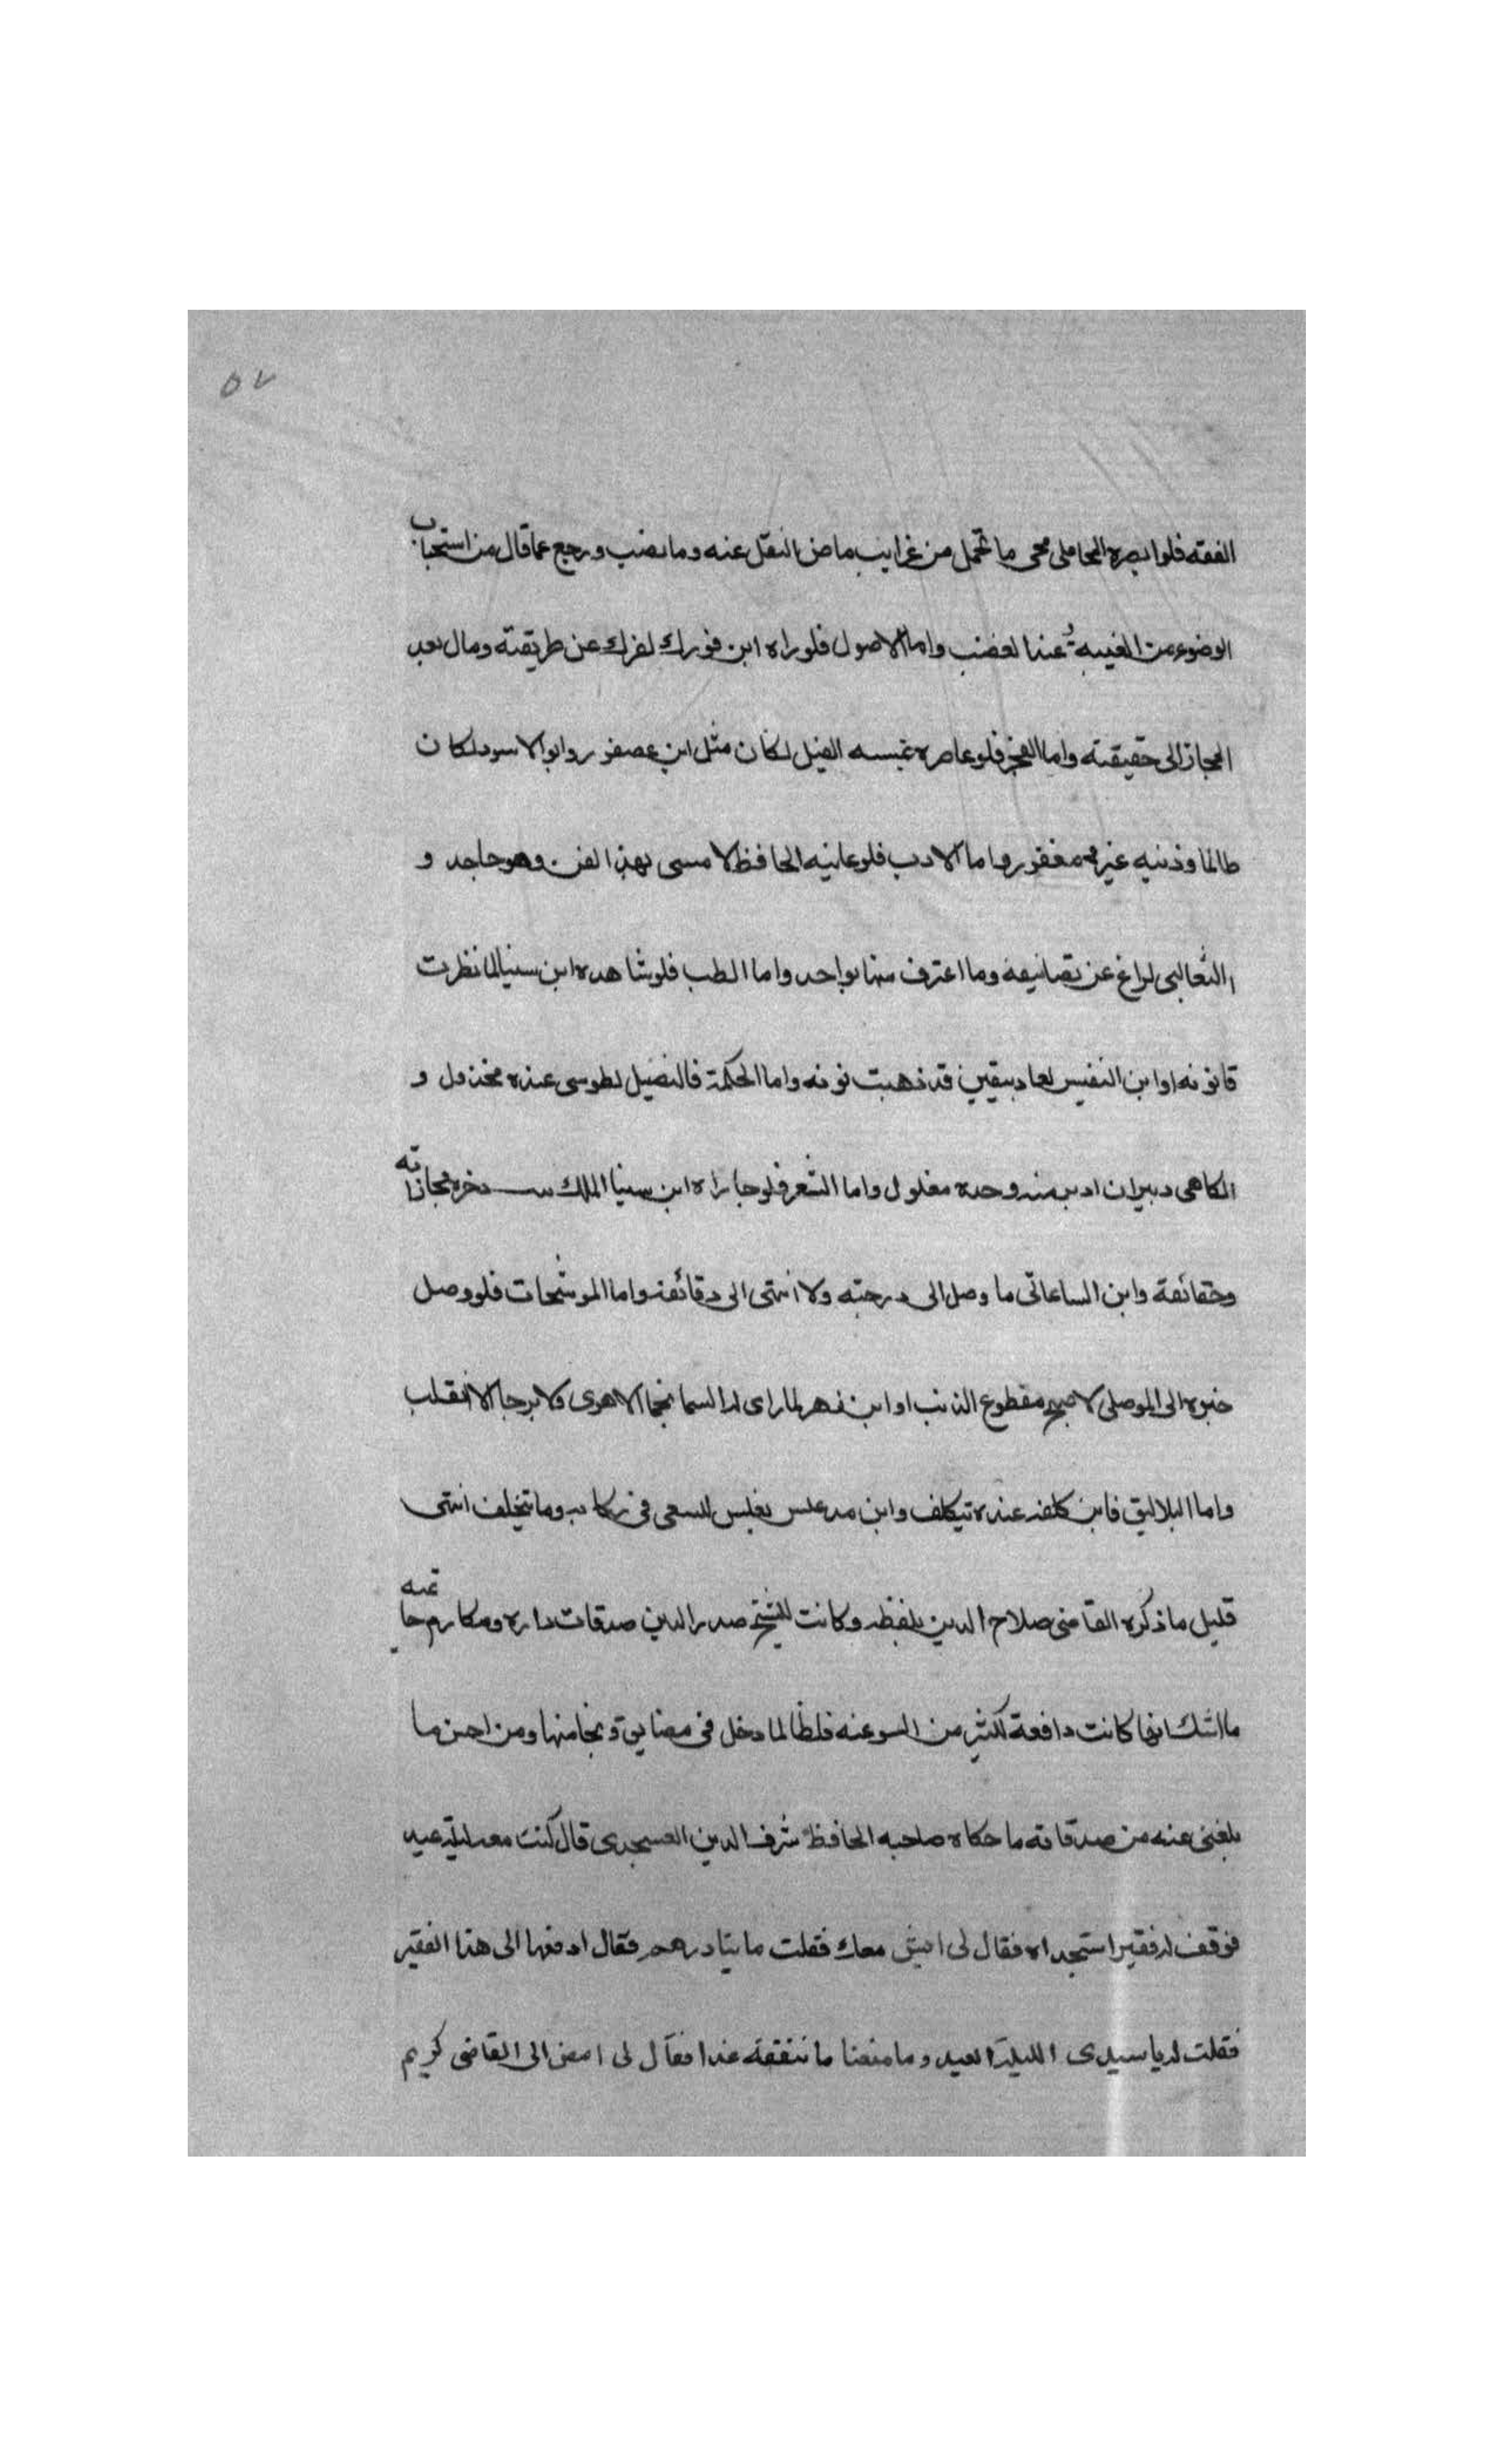 ٥٧
الفقه فلو ابصره المحاملى محى ما تحمل من غرايب ماض النقل عنه وما نضب ورجع عما قال من استحباب
الوضوء من الغيبة عند الغضب واما الاصول فلو راه ابن فورك لفرك عن طريقته ومال بعد
المجاز الى حقيقته واما النحو فلو عاصره عنبسه الفيل لكان مثل ابن عصفور وابو الاسود لكان
ظالما وذنبه غير مغفور واما الادب فلو عاينه الحافظ لامسى بهذا الفن وهو جاحد و
الثعالبى لراغ عن تصانيفه وما اعترف منها بواحد واما الطب فلو شاهده ابن سينا لما نظرت
قانونه او ابن النفيس لعاد بيقين قد ذهبت نونه واما الحكمة فالنصيل لطوسى عنده مخذول و
الكاهى دبيران ادبر عنه وحده مغلول واما الشعر فلو جاراه ابن سينا الملك سخره مجازاته
وحقائقه وابن الساعاتى ما وصل الى درجته ولا انتهى الى دقائقه واما الموشحات فلو وصل
خبره الى الموصلى لاصبح مقطوع الذنب او ابن زهر لما راى له السما نجما الا هوى ولا برجا الا انقلب
واما البلاليق فابن كلفه عنده يتكلف وابن مدغلس يغلس للسعى فى ركابه وما يتخلف انتهى
قليل ما ذكره القاضى صلاح الدين بلفظه وكانت للشيخ صدر الدين صدقات داره ومكارم حاتميه
ما اشك انها كانت دافعة لكثير من السوء عنه فلطالما دخل فى مضايق ونجا منها ومن احسن ما
بلغنى عنه من صدقاته ما حكاه صاحبه الحافظ شرف الدين العسجدى قال كنت معه ليلة عيد
فوقف له فقير استجداه فقال لى ايش معك فقلت مايتا درهم فقال ادفعها الى هذا الفقير
فقلت له يا سيدى الليلة العيد وما معنا ما ننفقه غدا فقال لى امض الى القاضى كريم